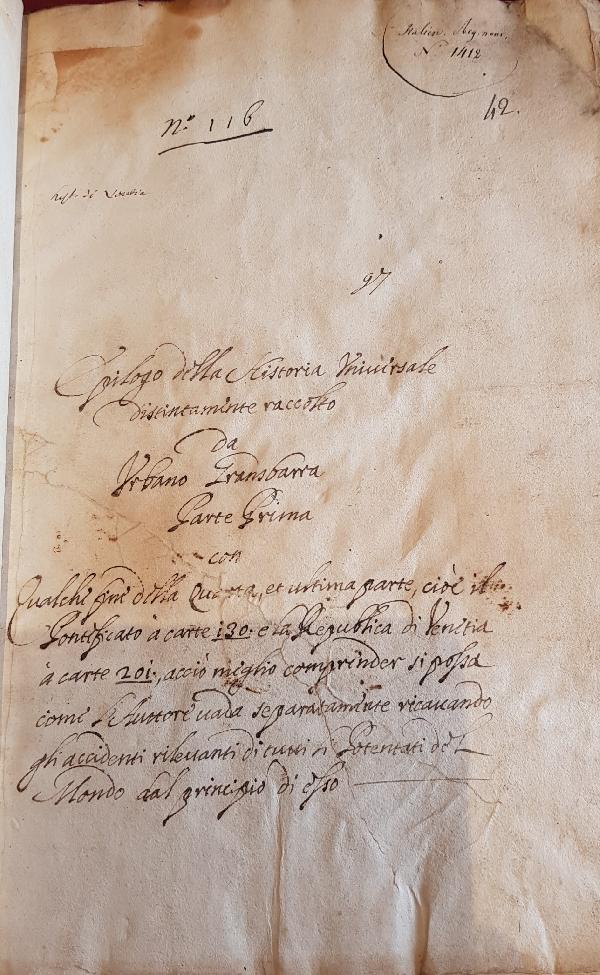 Italien. Reg. nouv.
N° 1412
42.
n.° 116
di Venetia
97
Epilogo della Historia Vniuersale
distintamente raccolto
da
Vrbano
Parte Prima
con
Qualche fine della Quarta, et ultima parte, cioè il
Pontificato à carte 130: e la Republica di Venetia
à carte 201:, acciò meglio comprender si possa
come l'Auttore uada separatamente ricauando
gli accidenti rileuanti di tutti i Potentati del
Mondo dal principio di esso